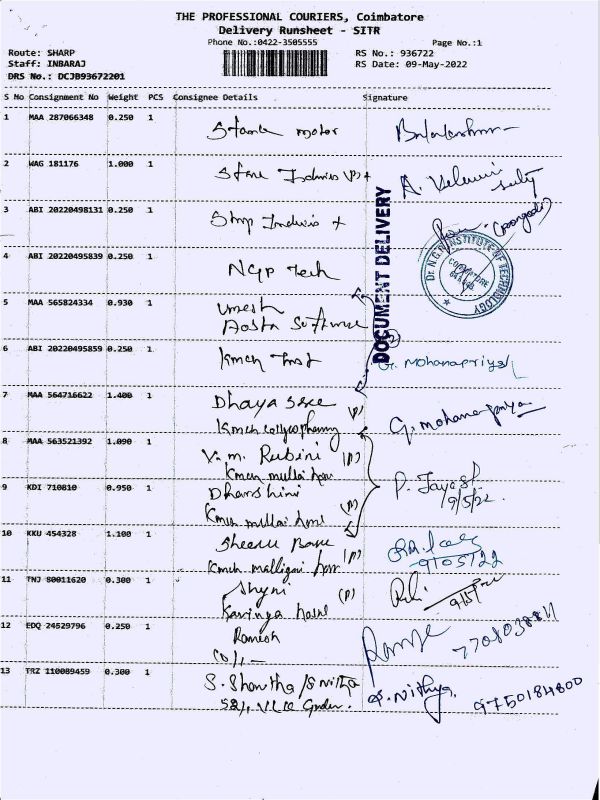 THE PROFESSIONAL COURIERS, Coimbatore
Delivery Runsheet - SITR
Phone No.:0422-3505555
Page No.:1
Route: SHARP
RS No.: 936722
Staff: INBARAJ
RS Date: 09-May-2022
DRS No.: DCJB93672201
S No Consignment No Weight PCS Consignee Details Signature
1 MAA 287066348 0.250 1
motor
2 WAG 181176 1.000 1
(P)
A.
3 ABI 20220498131 0.250 1
DOCUMENT DELIVERY
4 ABI 20220495839 0.250 1
NGP Tech
Dr. N.G.P. INSTITUTE OF TECHNOLOGY
COIMBATORE
5 MAA 565824334 0.930 1
Umesh
Aosta Software
6 ABI 20220495859 0.250 1
Kmch Trust
G. Mohanapriya
7 MAA 564716622 1.400 1
Dhaya sree (P)
Kmch
G. Mohanapriya
8 MAA 563521392 1.090 1
V.m. Rubini (P)
Kmch mullai
9 KDI 710810 0.950 1
Dharshini (P)
Kmch mullai
P.
9/5/22.
10 KKU 454328 1.100 1
Sheeru (P)
Kmch malligai
9/05/22
11 TNJ 80011620 0.300 1
Shyni (P)
9/5/
12 EDQ 24529796 0.250 1
Ramesh
13 TRZ 110089459 0.300 1
S. Shantha / Snitha
S. Nithya.
9750184800